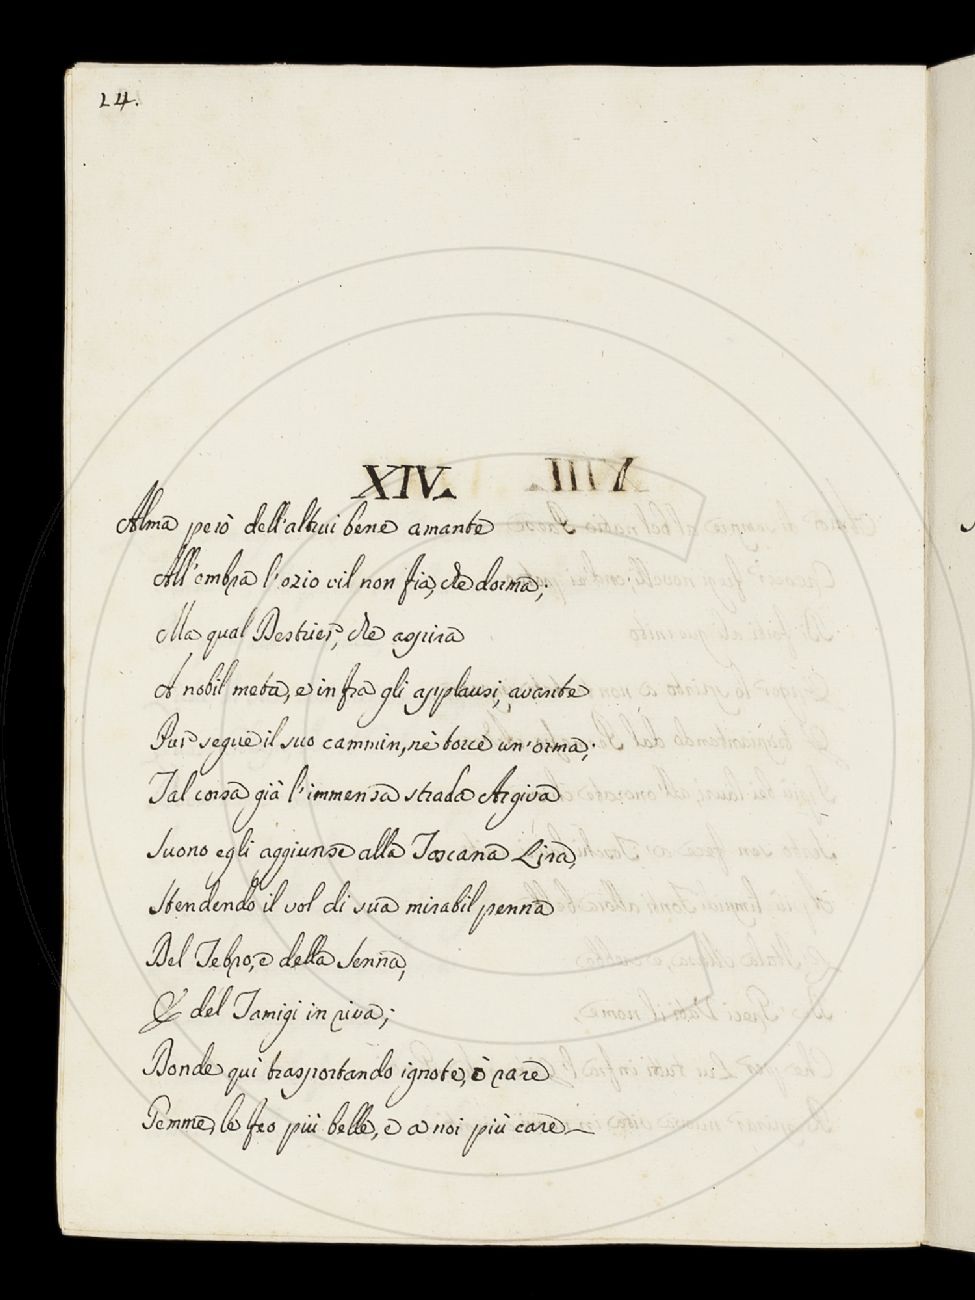 24.
XIV.
Alma però dell'altrui bene amante
All'ombra l'ozio vil non fia, che dorma;
Ma qual Destrier, che aspira
A nobil meta, e infra gli applausi, avante
Pur segue il suo cammin, nè torce un'orma;
Tal corsa già l'immensa strada Argiva
Suono egli aggiunse alla Toscana Lira,
Stendendo il vol di sua mirabil penna
Del Tebro, e della Senna,
E del Tamigi in riva;
Donde quì trasportando ignote, ò rare
Gemme, le feo più belle, e a noi più care